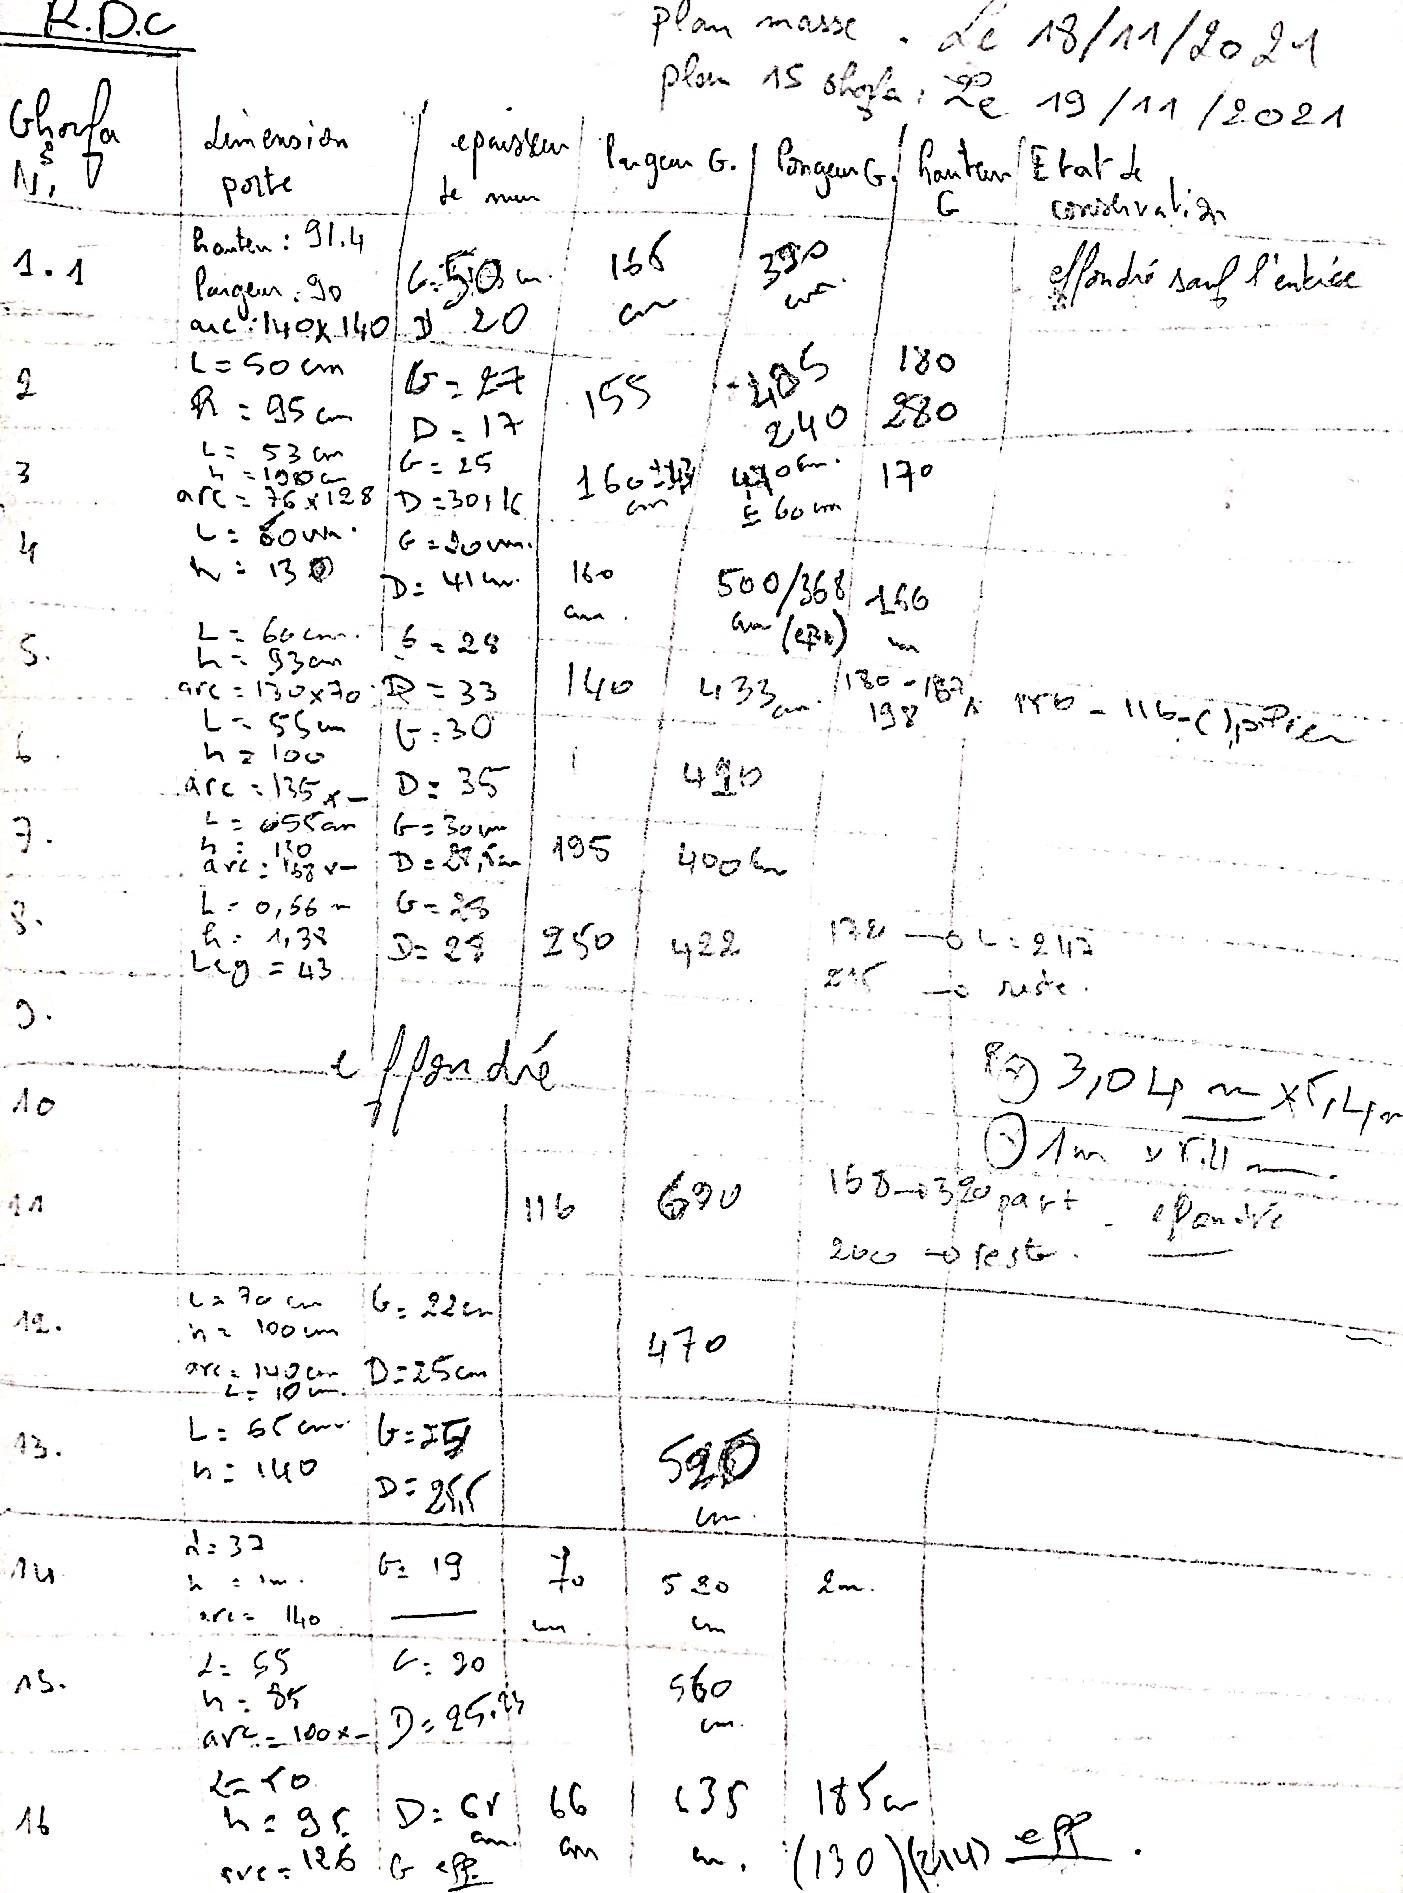 R.D.C
plan masse. Le 18/11/2021
plan 15 ghorfa: Le 19/11/2021
Ghorfa N° dimension porte epaisseur de mur largeur G. longeur G. hauteur G Etat de conservation
1.1 hauteur: 91.4 largeur: 90 arc: 140x140 G: 50 cm D 20 166 cm 390 cm effondré sauf l'entrée
2 L=50cm h=95cm G=27 D=17 155 485 240 180 280
3 L=53cm h=100cm arc=76x128 G=25 D=30 160 cm 470cm ± 60cm 170
4 h=130 G=20cm. D=41cm. 160 cm. 500/368 cm 166
5. L=60cm. h=93cm arc=130x70 G=28 D=33 140 433cm. 180-187 198 116
6. L=55cm h=100 arc=135x- G=30 D=35 490
7. L=055cm h=130 arc: 158x- G=30cm D=28,5cm 195 400cm
8. L=0,56m h=1,38 Leg=43 G=28 D=28 250 422 178 → L=247
215 → reste.
9.
effondré
3,04 m x 5,4m
10
1m x 5.4 m.
11 116 690 158→320 part effondré
200 → reste.
12. L=70cm h=100cm arc=140cm L=10cm. G=22cm D=25cm 470
13. L=65cm h=140 G=25 D=25,5 520 cm
14 L=37 h=1m. arc=140 G=19 70 cm. 520 cm 2m.
15. L=55 h=85 arc=100x- G=20 D=25. 560 cm.
16 L=50 h=95 arc=126 D=65 cm. G eff. 66 cm 635 cm. 185cm
(130)(214) eff.